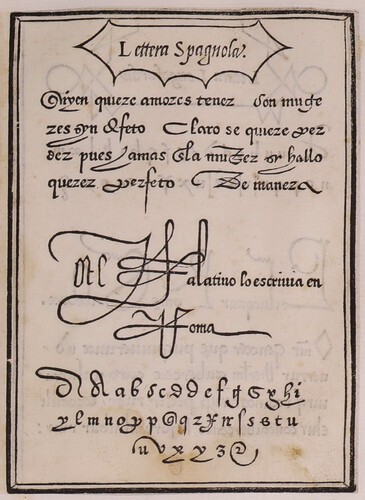 Lettera Spagnola.
Qiyen quere amores tener Con muge
res syn Efeto Claro se quiere per
der pues yamas En la muger sy hallo
querer perfeto De manera
Palatino lo escrivia en
Roma
a A a b c c d d e f g G g h i
y l m n o p p Q q z R r s s s t u
u v x y z